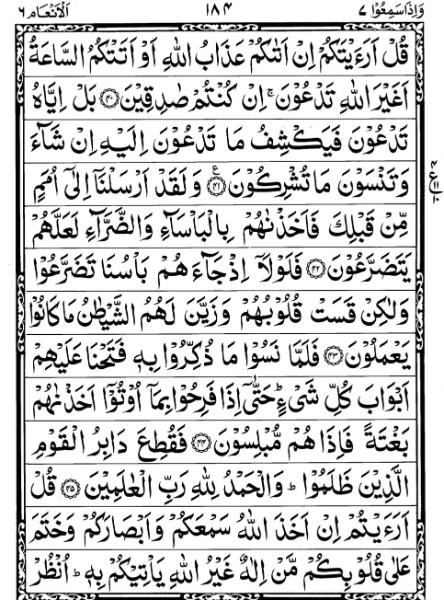 وَاِذَاسَمِعُوْا ٧ ١٨٤ اَلْاَنْعَام ٦
قُلْ اَرَءَيْتَكُمْ اِنْ اَتٰىكُمْ عَذَابُ اللّٰهِ اَوْ اَتَتْكُمُ السَّاعَةُ
اَغَيْرَ اللّٰهِ تَدْعُوْنَ ۚ اِنْ كُنْتُمْ صٰدِقِيْنَ ﴿٤٠﴾ بَلْ اِيَّاهُ
تَدْعُوْنَ فَيَكْشِفُ مَا تَدْعُوْنَ اِلَيْهِ اِنْ شَآءَ
وَتَنْسَوْنَ مَا تُشْرِكُوْنَ ﴿٤١﴾ ع وَلَقَدْ اَرْسَلْنَاۤ اِلٰۤى اُمَمٍ
مِّنْ قَبْلِكَ فَاَخَذْنٰهُمْ بِالْبَاْسَآءِ وَالضَّرَّآءِ لَعَلَّهُمْ
يَتَضَرَّعُوْنَ ﴿٤٢﴾ فَلَوْلَاۤ اِذْ جَآءَهُمْ بَاْسُنَا تَضَرَّعُوْا
وَلٰكِنْ قَسَتْ قُلُوْبُهُمْ وَزَيَّنَ لَهُمُ الشَّيْطٰنُ مَا كَانُوْا
يَعْمَلُوْنَ ﴿٤٣﴾ فَلَمَّا نَسُوْا مَا ذُكِّرُوْا بِهٖ فَتَحْنَا عَلَيْهِمْ
اَبْوَابَ كُلِّ شَیْءٍ ؕ حَتّٰۤى اِذَا فَرِحُوْا بِمَاۤ اُوْتُوْۤا اَخَذْنٰهُمْ
بَغْتَةً فَاِذَا هُمْ مُّبْلِسُوْنَ ﴿٤٤﴾ فَقُطِعَ دَابِرُ الْقَوْمِ
الَّذِيْنَ ظَلَمُوْا ؕ وَالْحَمْدُ لِلّٰهِ رَبِّ الْعٰلَمِيْنَ ﴿٤٥﴾ قُلْ
اَرَءَيْتُمْ اِنْ اَخَذَ اللّٰهُ سَمْعَكُمْ وَاَبْصَارَكُمْ وَخَتَمَ
عَلٰى قُلُوْبِكُمْ مَّنْ اِلٰهٌ غَيْرُ اللّٰهِ يَاْتِيْكُمْ بِهٖ ؕ اُنْظُرْ
٤
ع ١١
١٠